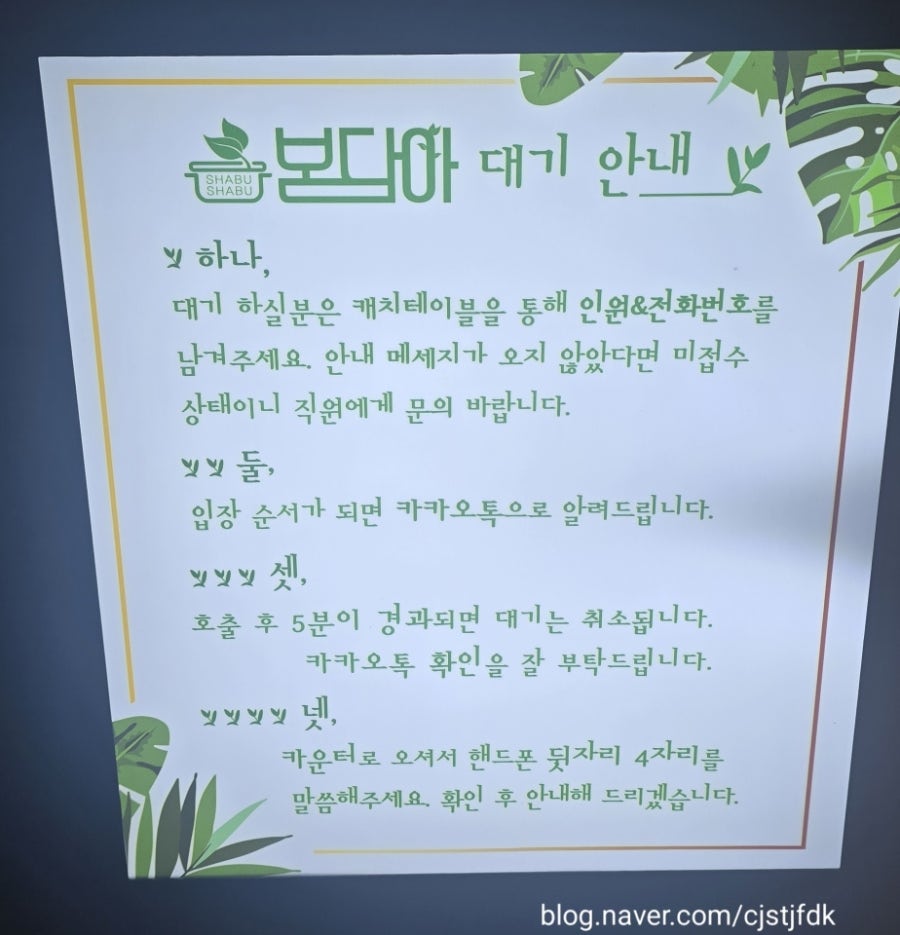 SHABU
SHABU
본담아 대기 안내
하나,
대기 하실분은 캐치테이블을 통해 인원&전화번호를
남겨주세요. 안내 메세지가 오지 않았다면 미접수
상태이니 직원에게 문의 바랍니다.
둘,
입장 순서가 되면 카카오톡으로 알려드립니다.
셋,
호출 후 5분이 경과되면 대기는 취소됩니다.
카카오톡 확인을 잘 부탁드립니다.
넷,
카운터로 오셔서 핸드폰 뒷자리 4자리를
말씀해주세요. 확인 후 안내해 드리겠습니다.
blog.naver.com/cjstjfdk